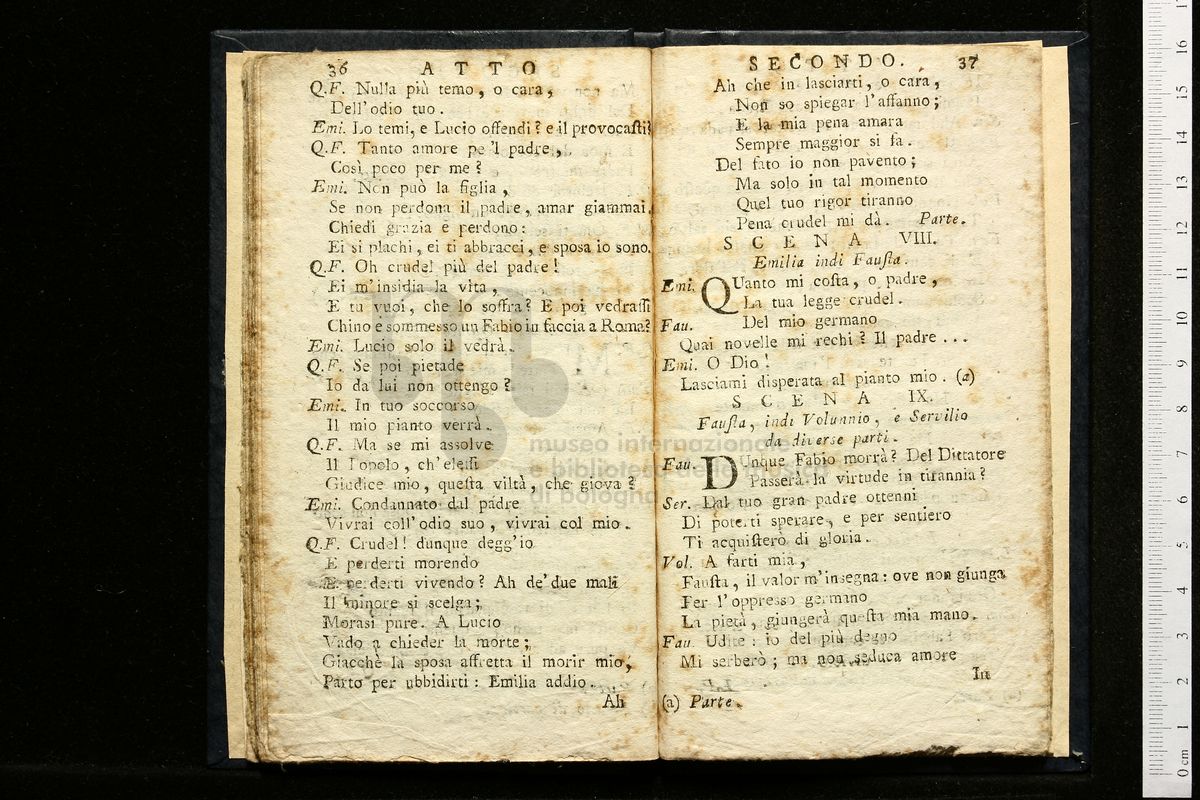 36 ATTO
Q.F. Nulla più temo, o cara,
Dell'odio tuo.
Emi. Lo temi, e Lucio offendi? e il provocasti?
Q.F. Tanto amore pe 'l padre,
Così poco per me?
Emi. Non può la figlia,
Se non perdona il padre, amar giammai.
Chiedi grazia e perdono:
Ei si plachi, ei ti abbracci, e sposa io sono.
Q.F. Oh crudel più del padre!
Ei m'insidia la vita,
E tu vuoi, che lo soffra? E poi vedrassi
Chino e sommesso un Fabio in faccia a Roma?
Emi. Lucio solo il vedrà.
Q.F. Se poi pietade
Io da lui non ottengo?
Emi. In tuo soccorso
Il mio pianto verrà.
Q.F. Ma se mi assolve
Il Popolo, ch'elessi
Giudice mio, questa viltà, che giova?
Emi. Condannato dal padre
Vivrai coll'odio suo, vivrai col mio.
Q.F. Crudel! dunque degg'io
E perderti morendo
E perderti vivendo? Ah de'due mali
Il minore si scelga;
Morasi pure. A Lucio
Vado a chieder la morte;
Giacchè la sposa affretta il morir mio,
Parto per ubbidirti: Emilia addio.
Ah
SECONDO. 37
Ah che in lasciarti, o cara,
Non so spiegar l'affanno;
E la mia pena amara
Sempre maggior si fa.
Del fato io non pavento;
Ma solo in tal momento
Quel tuo rigor tiranno
Pena crudel mi dà. Parte.
SCENA VIII.
Emilia indi Fausta.
Emi. QUanto mi costa, o padre,
La tua legge crudel.
Fau. Del mio germano
Quai novelle mi rechi? Il padre ...
Emi. O Dio!
Lasciami disperata al pianto mio. (a)
SCENA IX.
Fausta, indi Volunnio, e Servilio
da diverse parti.
Fau. DUnque Fabio morrà? Del Dittatore
Passerà la virtude in tirannia?
Ser. Dal tuo gran padre ottenni
Di poterti sperare, e per sentiero
Ti acquisterò di gloria.
Vol. A farti mia,
Fausta, il valor m'insegna: ove non giunga
Per l'oppresso germano
La pietà, giungerà questa mia mano.
Fau Udite: io del più degno
Mi serberò; ma non seduca amore
In
(a) Parte.
museo internazionale
e biblioteca della musica
di bologna
0 cm 1 2 3 4 5 6 7 8 9 10 11 12 13 14 15 16